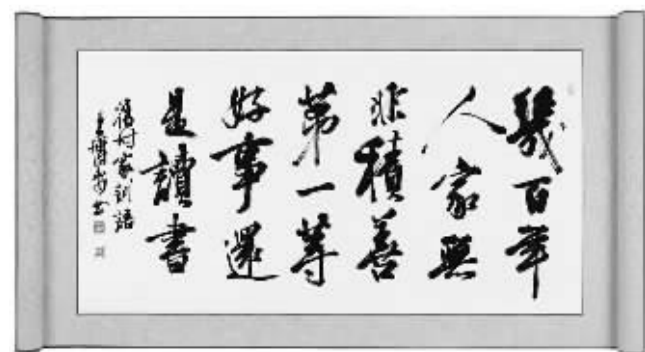 幾百年
人家無
非積善
第一等
好事還
是讀書
村家訓語